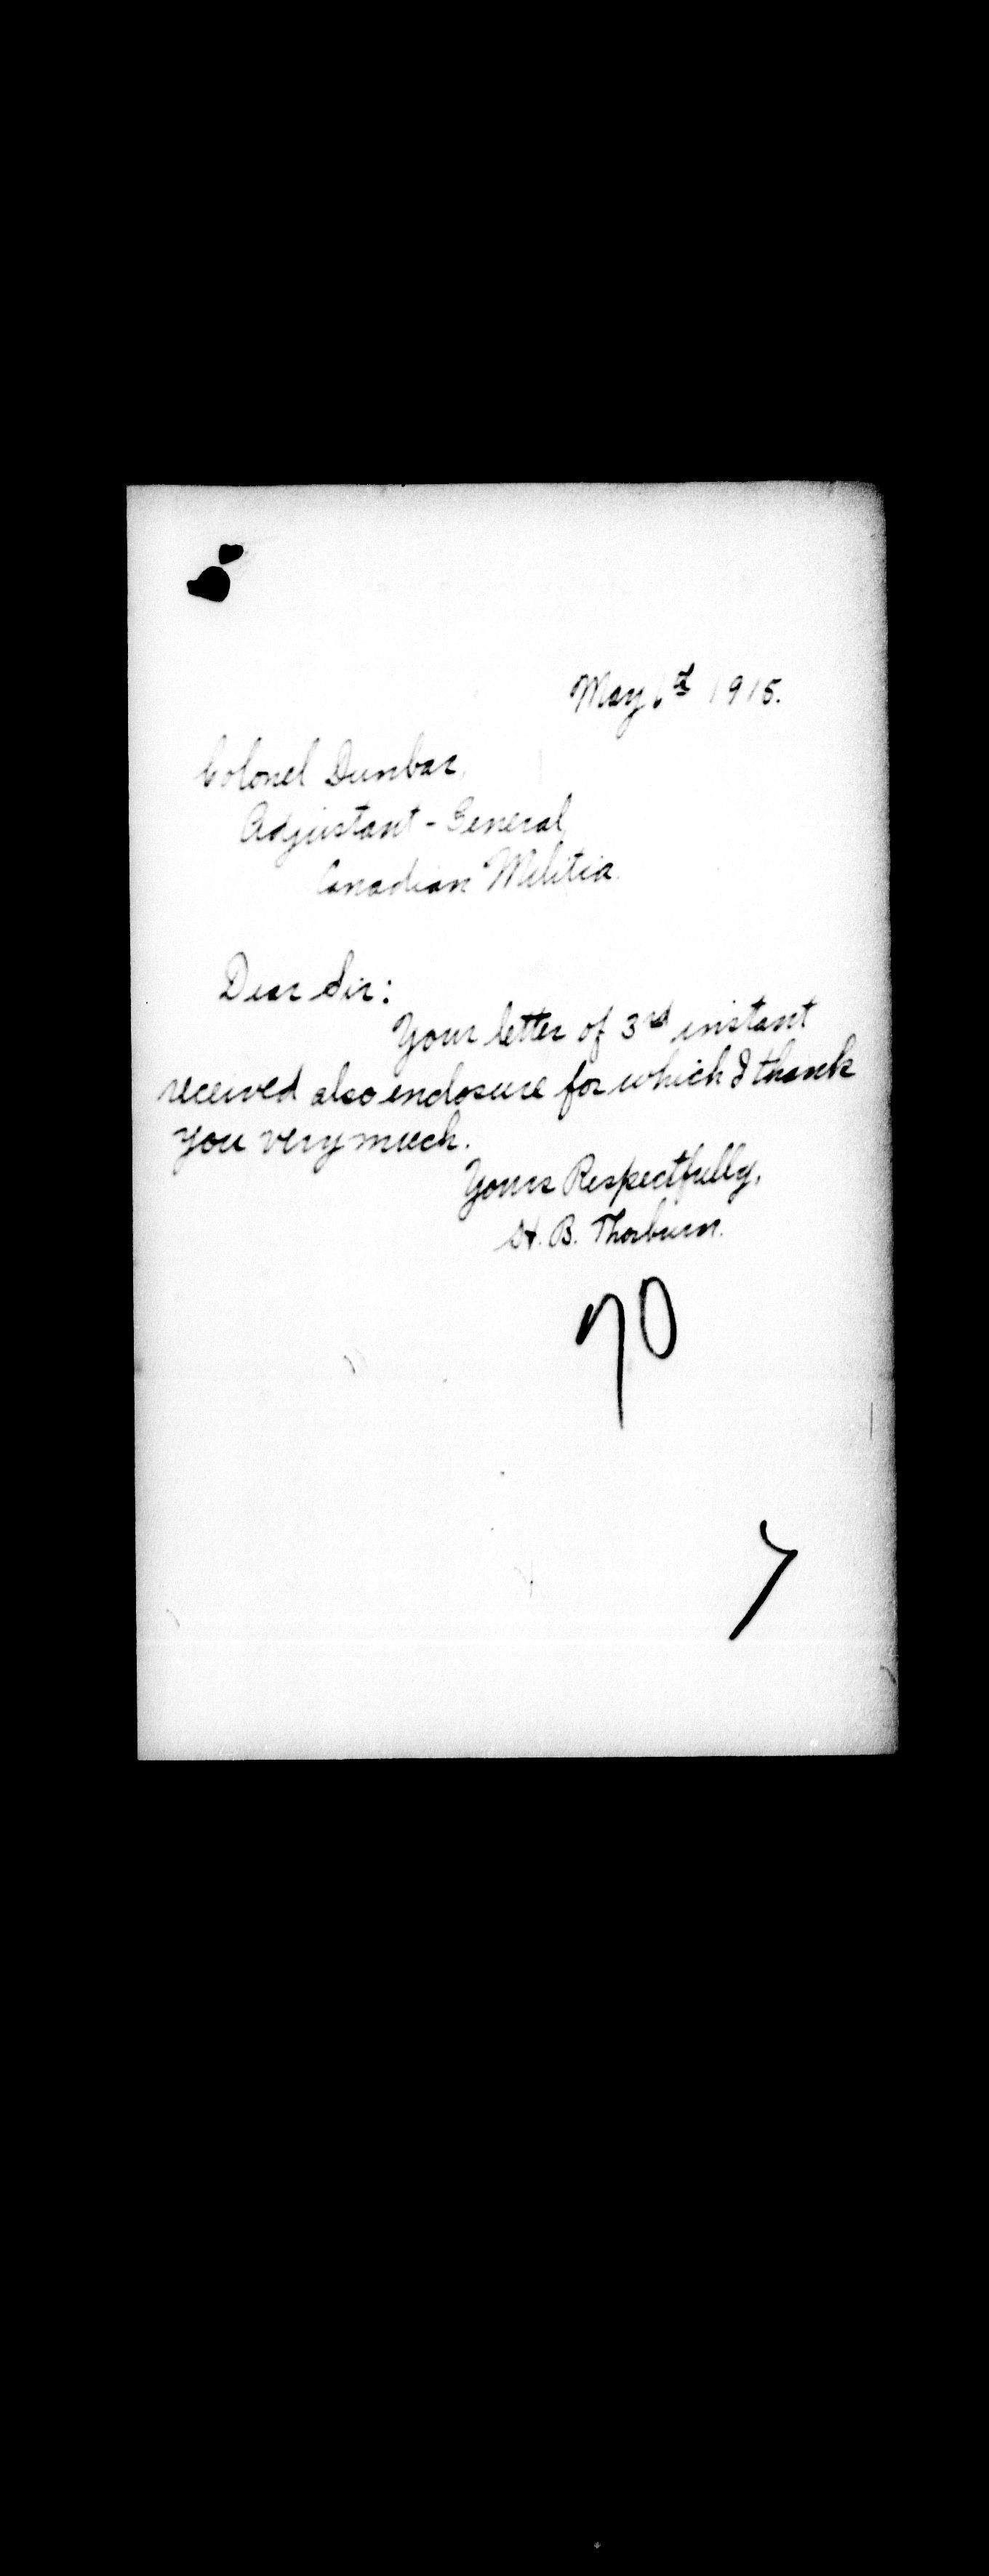 May 6th 1915.
Colonel Dunbar,
Adjustant-General,
Canadian Militia.
Dear Sir:
Your letter of 3rd instant
received also enclosure for which I thank
you very much.
Yours Respectfully,
H. B. Thorburn.
70
7